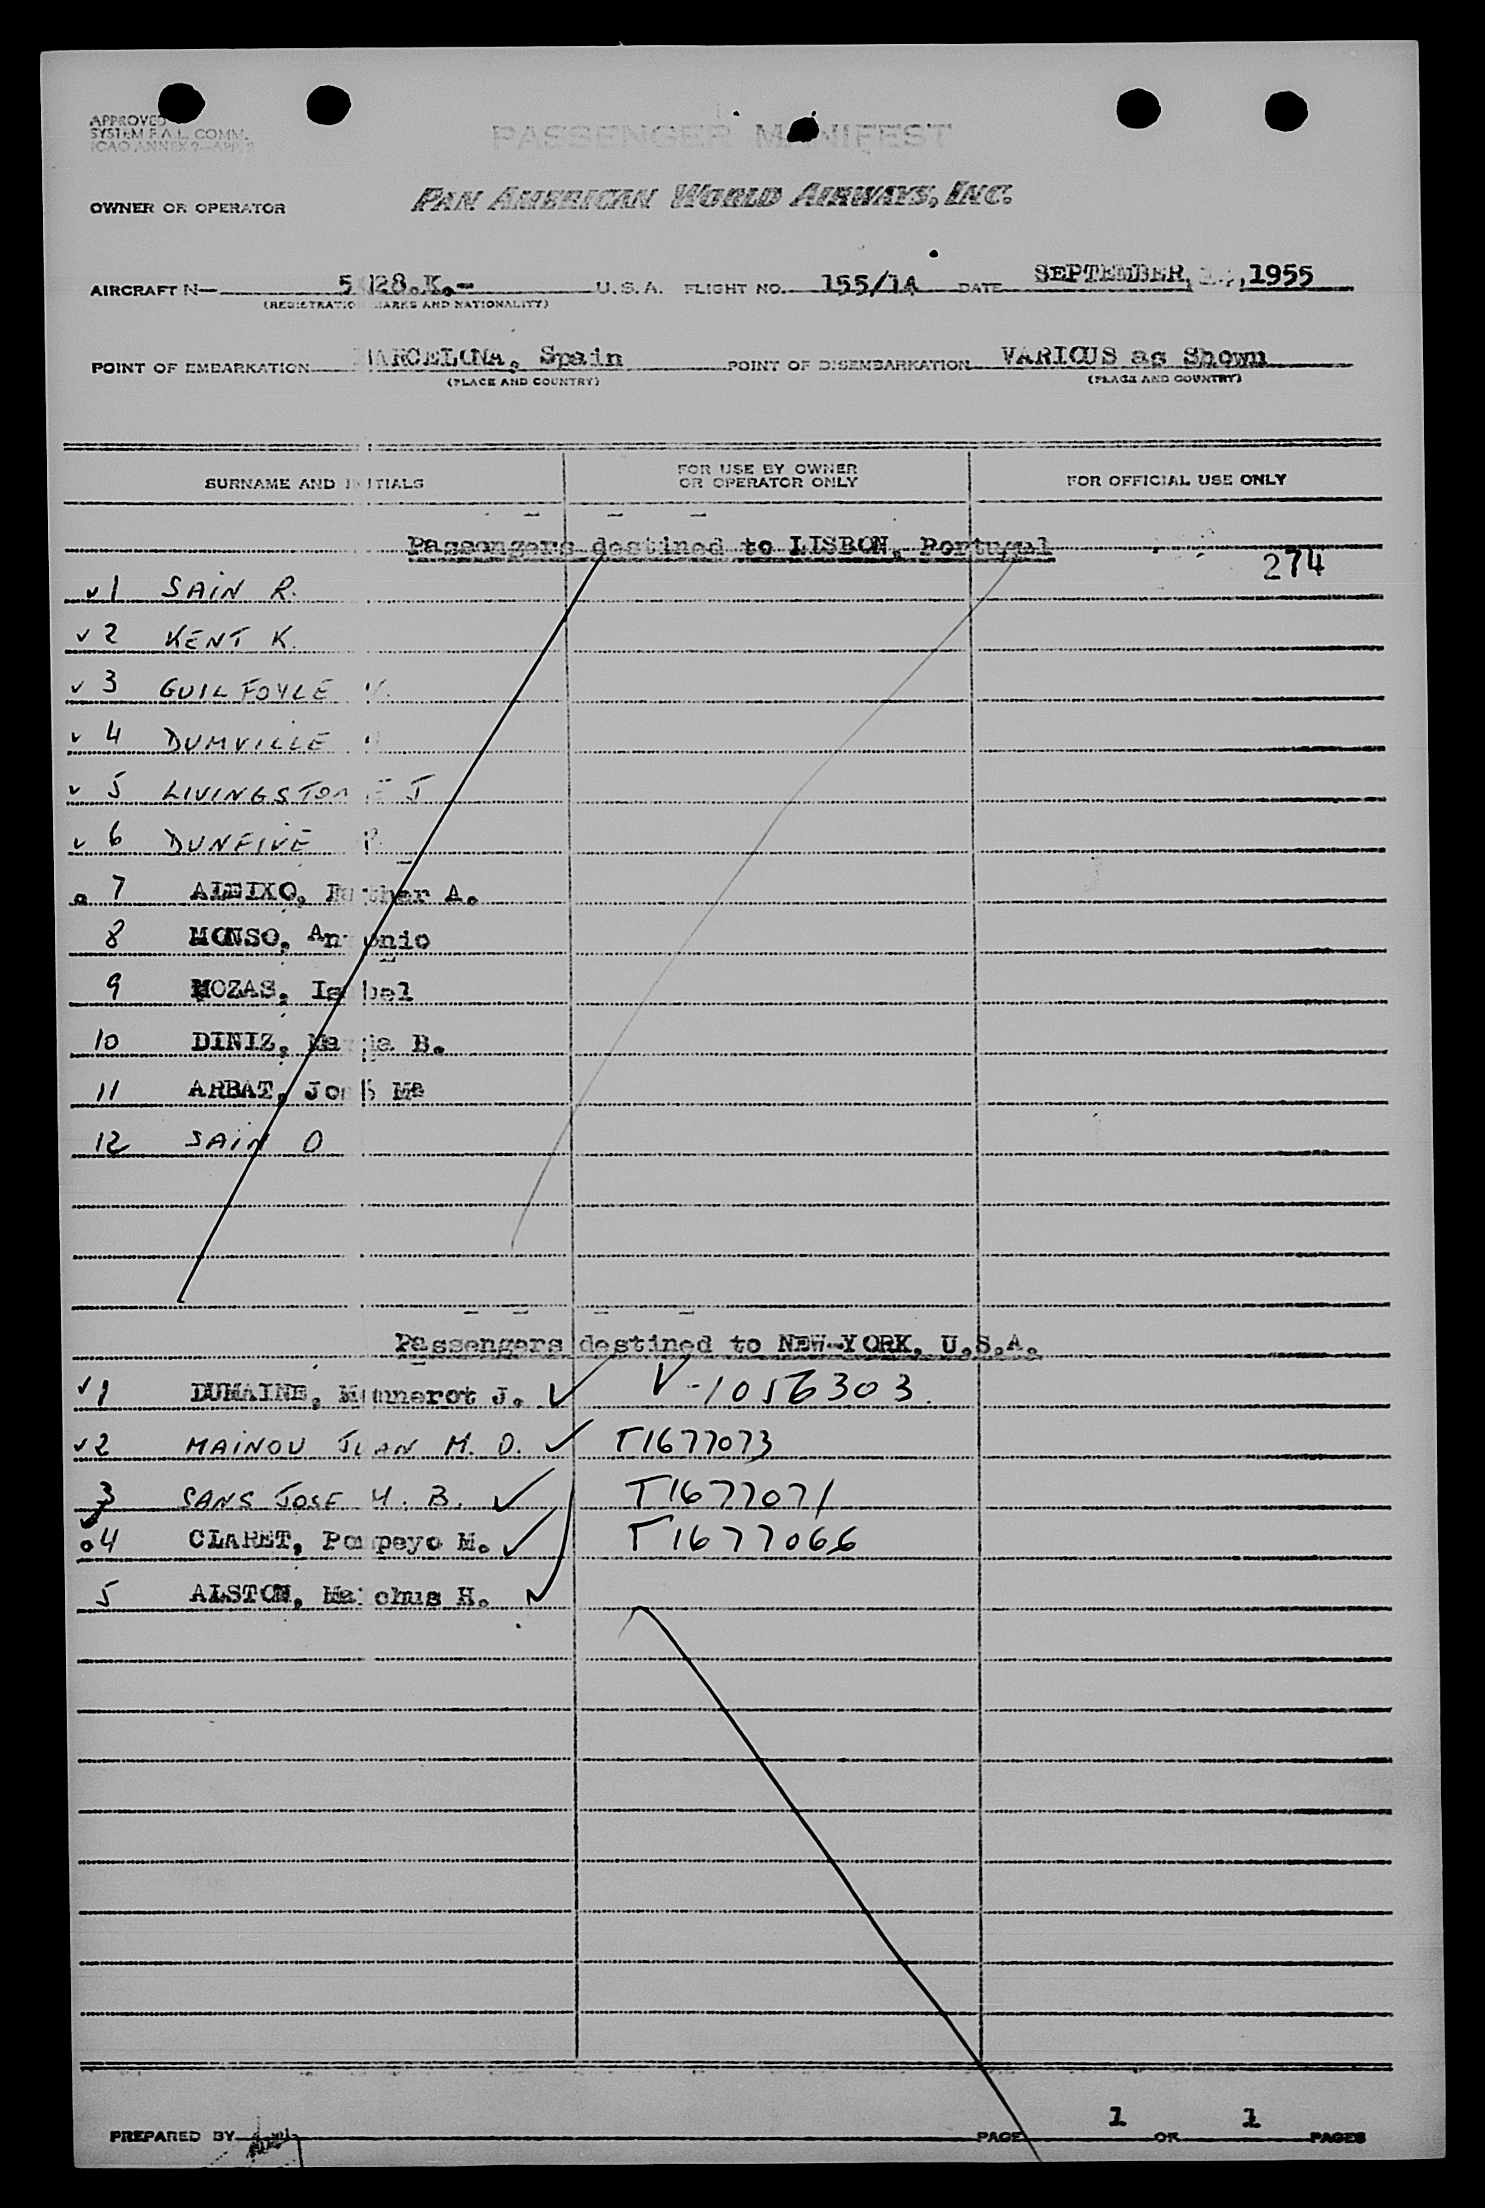 APPROVED
SYSTEM F.A.L. COMM.
ICAO ANNEX 9—APP.
PASSENGER MANIFEST
OWNER OR OPERATOR PAN AMERICAN WORLD AIRWAYS, INC.
AIRCRAFT N— 28.K.- U.S.A. FLIGHT NO. 155/1A DATE SEPTEMBER, ,1955
(REGISTRATION MARKS AND NATIONALITY)
POINT OF EMBARKATION BARCELONA, Spain POINT OF DISEMBARKATION VARIOUS as Shown
(PLACE AND COUNTRY) (PLACE AND COUNTRY)
SURNAME AND INITIALS FOR USE BY OWNER OR OPERATOR ONLY FOR OFFICIAL USE ONLY
Passengers destined to LISBON, Portugal
274
✓1 SAIN R.
✓2 KENT K.
✓3 GUILFOYLE
✓4 DUMVILLE
✓5 LIVINGSTONE J
✓6 DUNFIVE P.
7 ALEIXO, Father A.
8 MONSO, Antonio
9 MOZAS, Isabel
10 DINIZ, B.
11 ARBAT, José Mª
12 SAIN O
Passengers destined to NEW-YORK, U.S.A.
✓1 DUMAINE, J. ✓ V-1056303
✓2 MAINOU JUAN M. D. ✓ T1677073
3 SANS JOSE M. B. ✓ T1677071
4 CLARET, Pompeyo M. ✓ T1677066
5 ALSTON, H. ✓
PREPARED BY PAGE 1 OF 1 PAGES